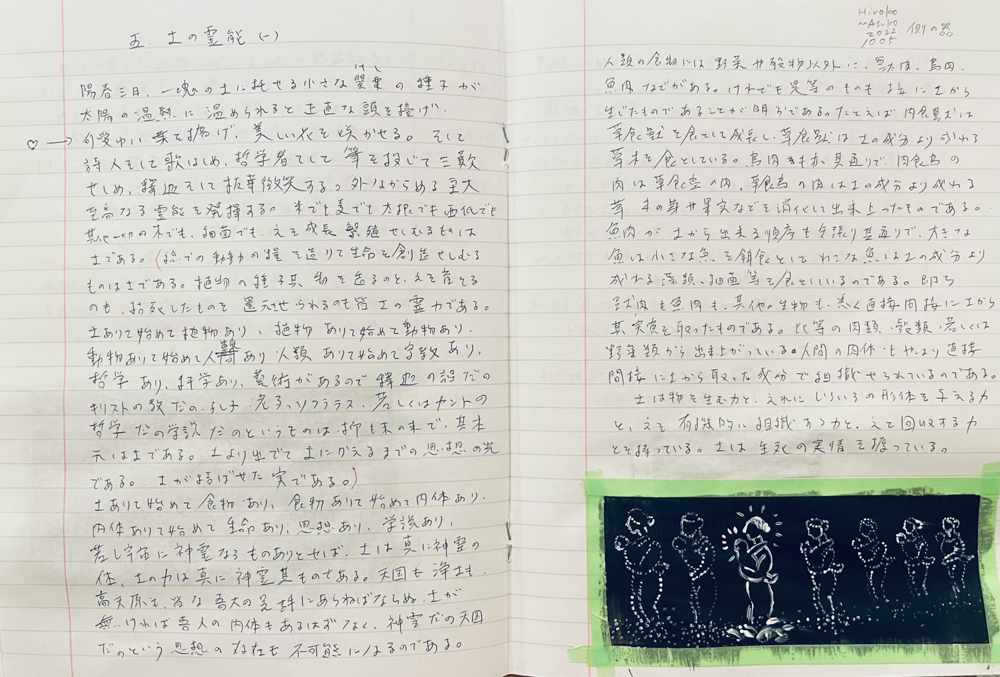 五、土の霊能(一)
陽春三月、一塊の土に托せる小さな罌粟の種子が
けし
太陽の温熱に温められると正直な頭を擡げ、
♡→可愛ゆい葉を拡げ、美しい花を咲かせる。そして
詩人をして歌はしめ、哲学者をして筆を投じて三歎
せしめ、釈迦をして拈華微笑する。外ながらめる至大
至高なる霊能を発揮する。米でも麦でも大根でも馬鈴薯でも
其他一切の木でも、細菌でも、之を成長繁殖せしむるものは
土である。(総ての動動の糧を造りて生命を創造せしむる
ものは土である。植物の種子其物を造るのと、之を育てる
のも、枯死したものを還元せられるのも皆土の霊力である。
土ありて始めて植物あり、植物ありて始めて動物あり、
動物ありて始めて人類あり人類ありて始めて宗教あり、
哲学あり、科学あり、芸術があるので釈迦の説だの
キリストの教だの、孔子、老子、ソクラテス、若しくはカントの
哲学だの学説だのというものは、抑も末の末で、其本
元は土である。土より出でて土にかえるまでの思想の光
である。土がまろばせた実である。)
土ありて始めて食物あり、食物ありて始めて肉体あり、
肉体ありて始めて生命あり、思想あり、学説あり、
若し宇宙に神霊なるものありとせば、土は真に神霊の
体、土の力は真に神霊其ものである。天国も浄土も、
高天原も、皆な吾大の足許にあらねばならぬ。土が
無ければ吾人の肉体もあるはずなく、神霊だの天国
だのという思想の存在も不可能になるのである。
Hiroko
〜Asuko
2022
1005
人類の食物には野菜や穀物以外に、獣肉、鳥肉、
魚肉などがある。けれども是等のものも亦に土から
生じたものであることが明らである。たとえば肉食獣は
草食獣を食として成長し、草食獣は土の成分より成れる
草木を食としている。鳥肉も亦其通りで、肉食鳥の
肉は草食虫の肉、草食鳥の肉は土の成分より成れる
草木の芽や果実などを消化して出来上ったものである。
魚肉が土から出来る順序も矢張り其通りで、大きな
魚は小さな魚を餌食とし小さな魚は土の成分より
成れる藻類、細菌等を食としているのである。即ち
獣肉も魚肉も、其他の生物も、悉く直接間接に土から
其実質を取ったものである。此等の肉類、穀類、若しくは
野菜類から出来上がっている人間の肉体もやはり直接
間接に土から取った成分で組織せられているのである。
土は物を生む力と、之れにいろいろの形体を与える力
と、之を有機的に組織する力と、之を回収する力
とを持っている。土は生死の実情を握っている。